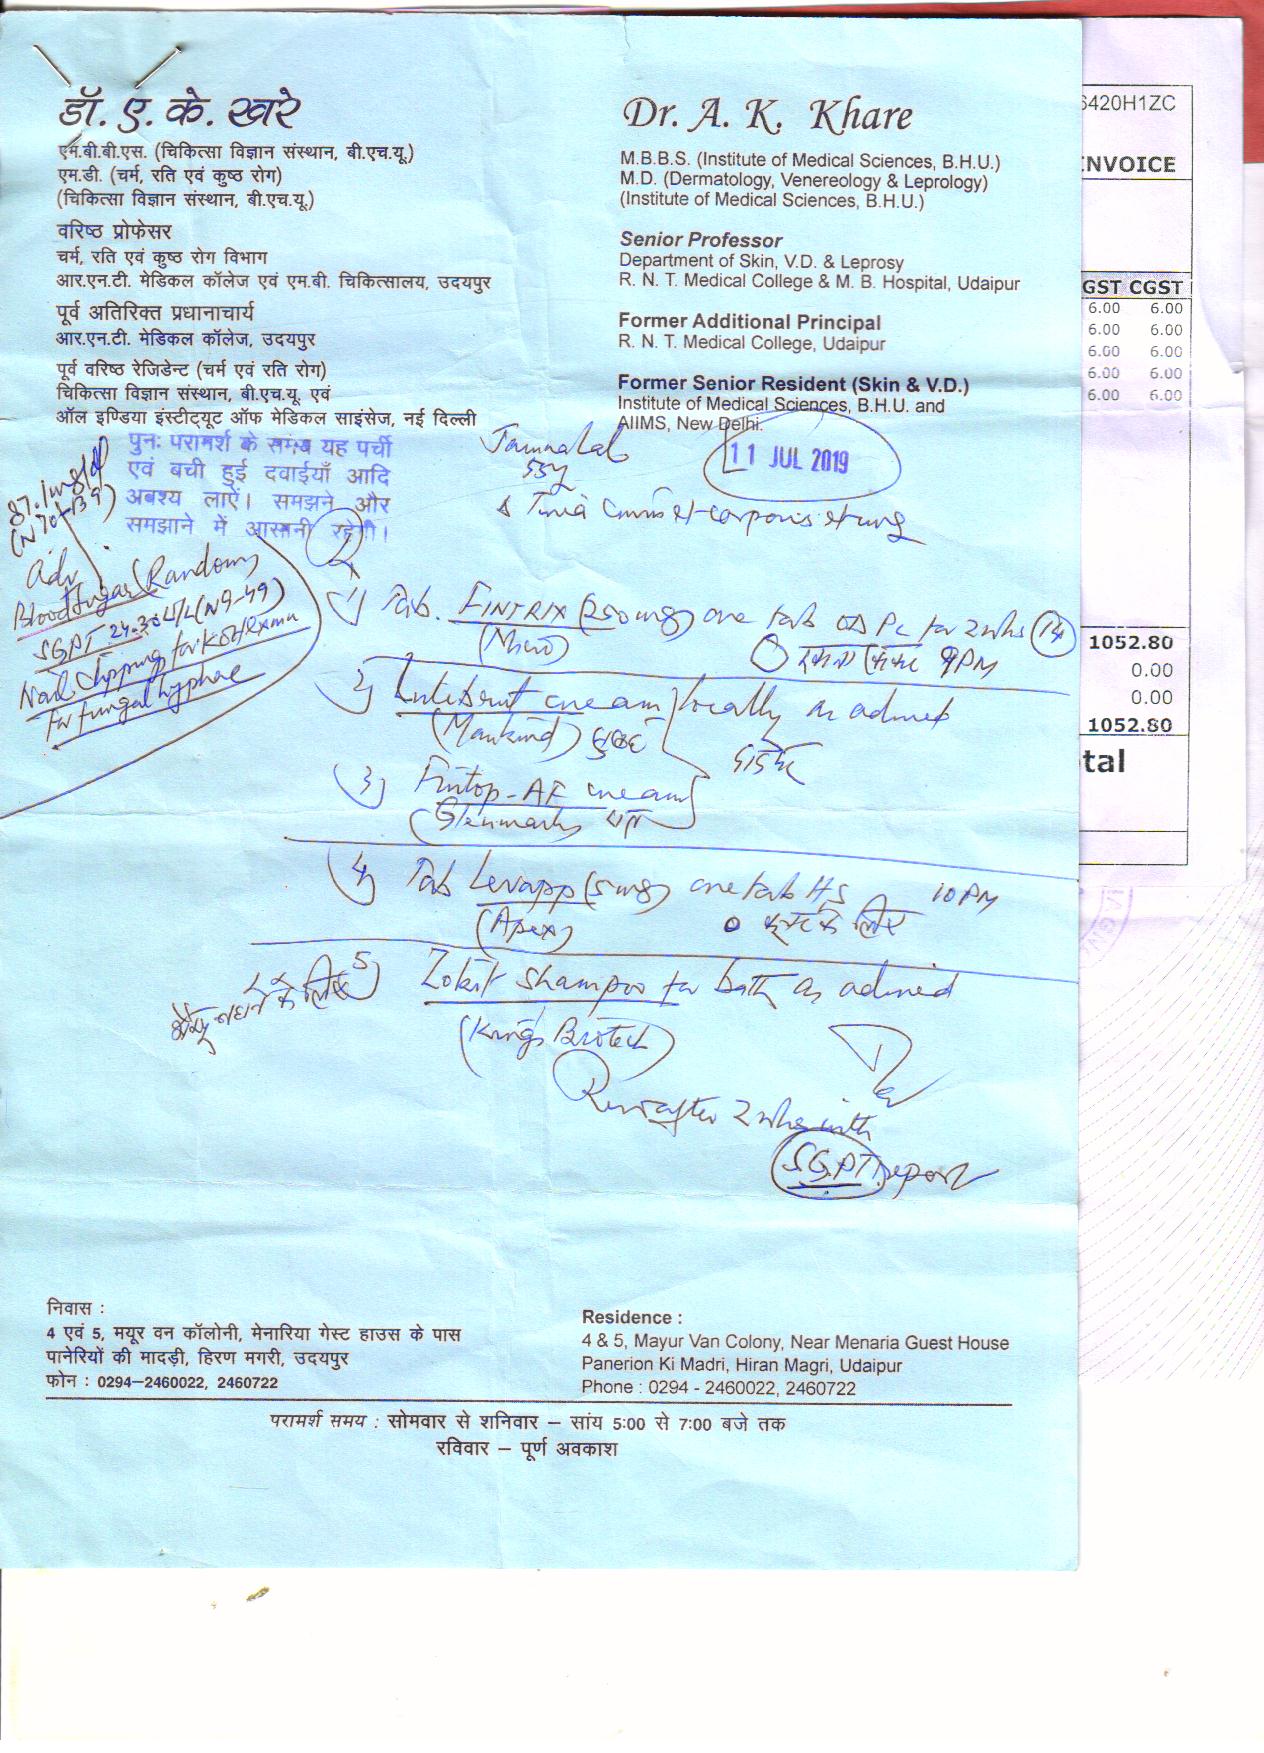 डॉ. ए. के. खरे
एम.बी.बी.एस. (चिकित्सा विज्ञान संस्थान, बी.एच.यू.)
एम.डी. (चर्म, रति एवं कुष्ठ रोग)
(चिकित्सा विज्ञान संस्थान, बी.एच.यू.)
वरिष्ठ प्रोफेसर
चर्म, रति एवं कुष्ठ रोग विभाग
आर.एन.टी. मेडिकल कॉलेज एवं एम.बी. चिकित्सालय, उदयपुर
पूर्व अतिरिक्त प्रधानाचार्य
आर.एन.टी. मेडिकल कॉलेज, उदयपुर
पूर्व वरिष्ठ रेजिडेन्ट (चर्म एवं रति रोग)
चिकित्सा विज्ञान संस्थान, बी.एच.यू. एवं
ऑल इण्डिया इंस्टीट्यूट ऑफ मेडिकल साइंसेज, नई दिल्ली
Dr. A. K. Khare
M.B.B.S. (Institute of Medical Sciences, B.H.U.)
M.D. (Dermatology, Venereology & Leprology)
(Institute of Medical Sciences, B.H.U.)
Senior Professor
Department of Skin, V.D. & Leprosy
R. N. T. Medical College & M. B. Hospital, Udaipur
Former Additional Principal
R. N. T. Medical College, Udaipur
Former Senior Resident (Skin & V.D.)
Institute of Medical Sciences, B.H.U. and
AIIMS, New Delhi.
6420H1ZC
INVOICE
GST CGST
6.00 6.00
6.00 6.00
6.00 6.00
6.00 6.00
6.00 6.00
1052.80
0.00
0.00
1052.80
tal
पुनः परामर्श के समय यह पर्ची
एवं बची हुई दवाईयाँ आदि
अवश्य लाऐं। समझने और
समझाने में आसानी रहेगी।
11 JUL 2019
Jamnalal
55y
Adv
Blood Sugar (Random)
SGPT 24.30 U/L (N 9-49)
Nail Clipping for KOH
for fungal hyphae
1) Tab. FINTRIX (250mg) one tab OD PC for 2 wks (14)
(Micro) 9PM
2) cream locally as advised
(Mankind) सुबह
3) Fintop-AF cream
(Glenmark)
4) Tab Levapp (5mg) one tab HS 10 PM
(Apex) के लिए
5) shampoo for bath as advised
(Kings Biotech)
Rev after 2 wks with
SGPT report
निवास :
4 एवं 5, मयूर वन कॉलोनी, मेनारिया गेस्ट हाउस के पास
पानेरियों की मादड़ी, हिरण मगरी, उदयपुर
फोन : 0294-2460022, 2460722
Residence :
4 & 5, Mayur Van Colony, Near Menaria Guest House
Panerion Ki Madri, Hiran Magri, Udaipur
Phone : 0294 - 2460022, 2460722
परामर्श समय : सोमवार से शनिवार – सांय 5:00 से 7:00 बजे तक
रविवार – पूर्ण अवकाश